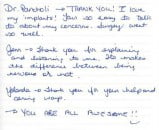 Dr Pantoli → THANK YOU! I love
my implants! You so easy to talk
to about my concerns. Surgery went
so well.
Jen - thank you for explaining
and listening to me. It makes
the difference between being
nervous or not.
Yolanda - thank you for your help and
caring ways.
→ YOU ARE ALL AWESOME!!